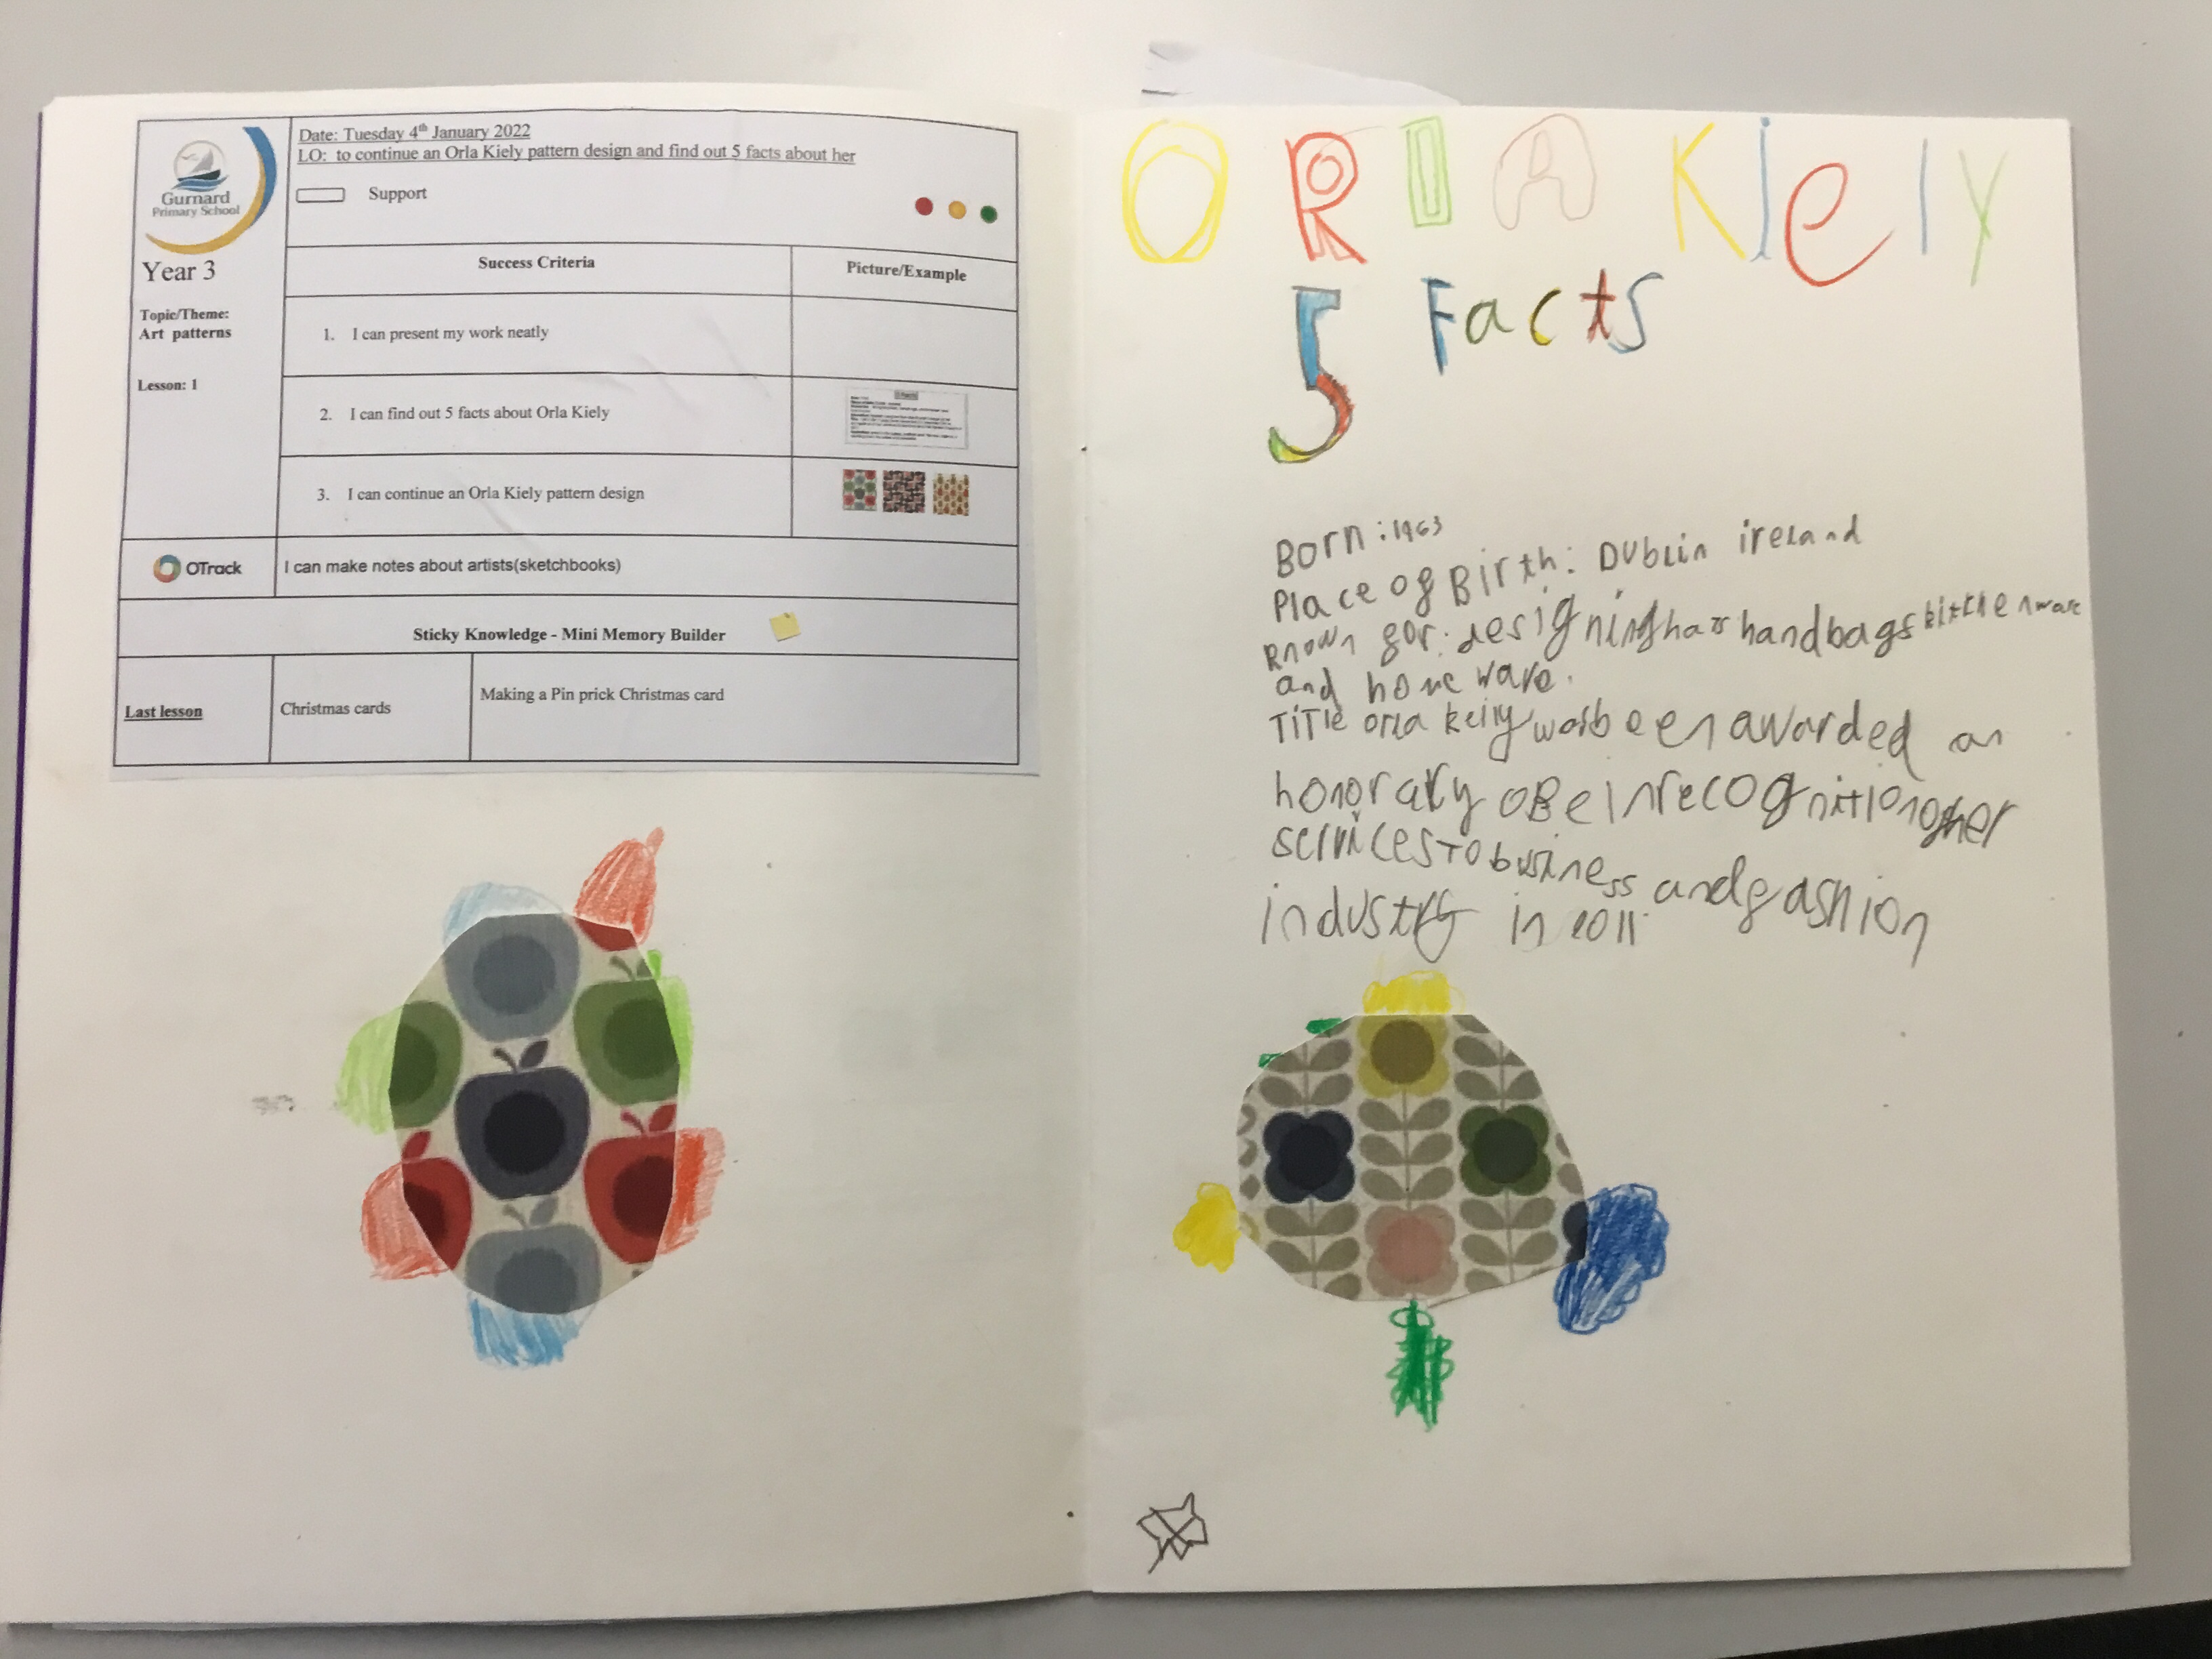 Gurnard
Primary School
Year 3
Topic/Theme:
Art patterns
Lesson: 1
Date: Tuesday 4th January 2022
LO: to continue an Orla Kiely pattern design and find out 5 facts about her
Support
Success Criteria
Picture/Example
1. I can present my work neatly
2. I can find out 5 facts about Orla Kiely
3. I can continue an Orla Kiely pattern design
OTrack
I can make notes about artists(sketchbooks)
Sticky Knowledge - Mini Memory Builder
Last lesson
Christmas cards
Making a Pin prick Christmas card
ORlA Kiely
5 Facts
Born: 1963
Place of Birth: Dublin ireland
known for: designing hats handbags kittchenware
and home ware.
TiTle orla keily was been awarded an
honorary OBe in recognittion of her
services To business and fashion
industry in 2011.